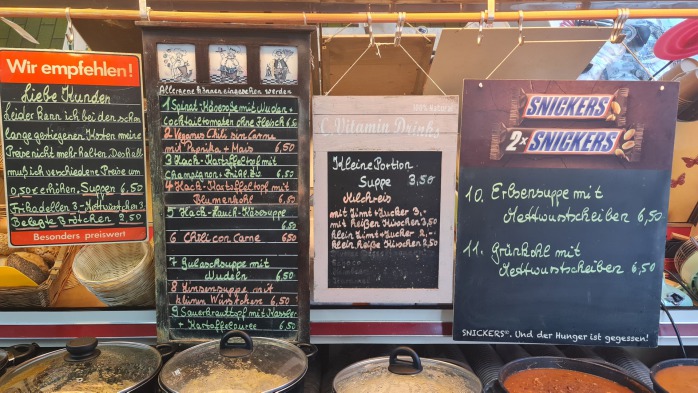 Wir empfehlen!
Liebe Kunden
Leider kann ich bei den schon
lange gestiegenen Kosten meine
Preise nicht mehr halten. Deshalb
muß ich verschiedene Preise um
0,50 € erhöhen. Suppen 6,50
Fribadellen 3,- Mettwürstchen 3,-
Belegte Brötchen 2,50
Besonders preiswert
Allergene können eingesehen werden
1 Spinat-Käsesoße mit Nudeln +
Cocktailtomaten ohne Fleisch 6,50
2 Veganes Chili sin Carne
mit Paprika + Mais 6,50
3 Hack-Kartoffeltopf mit
Champignon + Frische 6,50
4 Hack-Kartoffeltopf mit
Blumenkohl 6,50
5 Hack-Lauch-Käsesuppe
6,50
6 Chili con Carne 6,50
7 Gulaschsuppe mit
Nudeln 6,50
8 Linsensuppe mit
kleinen Würstchen 6,50
9 Sauerkrauttopf mit Kassler
+ Kartoffelpüree 6,50
100% Natural
C Vitamin Drinks
Kleine Portion
Suppe 3,50
Milchreis
mit Zimt+Zucker 3,-
mit heißen Kirschen 3,50
klein Zimt+Zucker 2,-
klein heiße Kirschen 2,50
SNICKERS
2x SNICKERS
10. Erbsensuppe mit
Mettwurstscheiben 6,50
11. Grünkohl mit
Mettwurstscheiben 6,50
SNICKERS®. Und der Hunger ist gegessen!